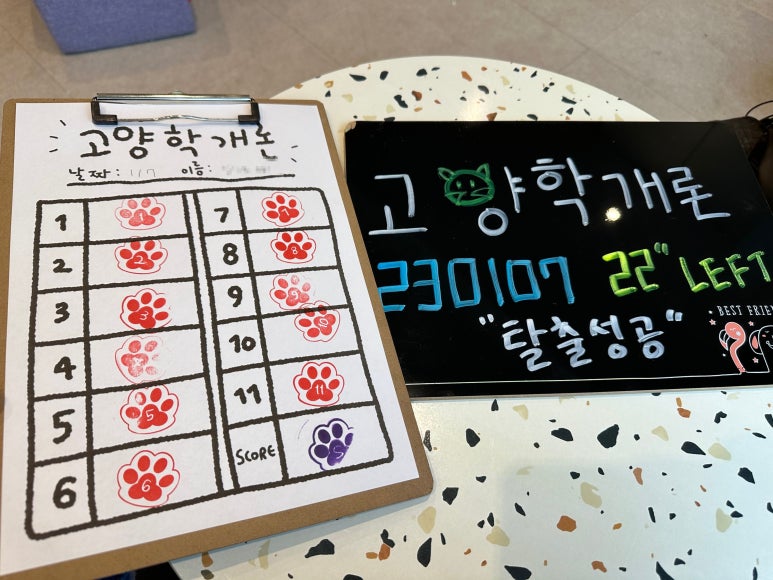 고양학개론
날짜: 1/7 이름:
1 7
2 8
3 9
4 10
5 11
6 SCORE S
고양학개론
230107 22" LEFT
"탈출성공"
BEST FRIE